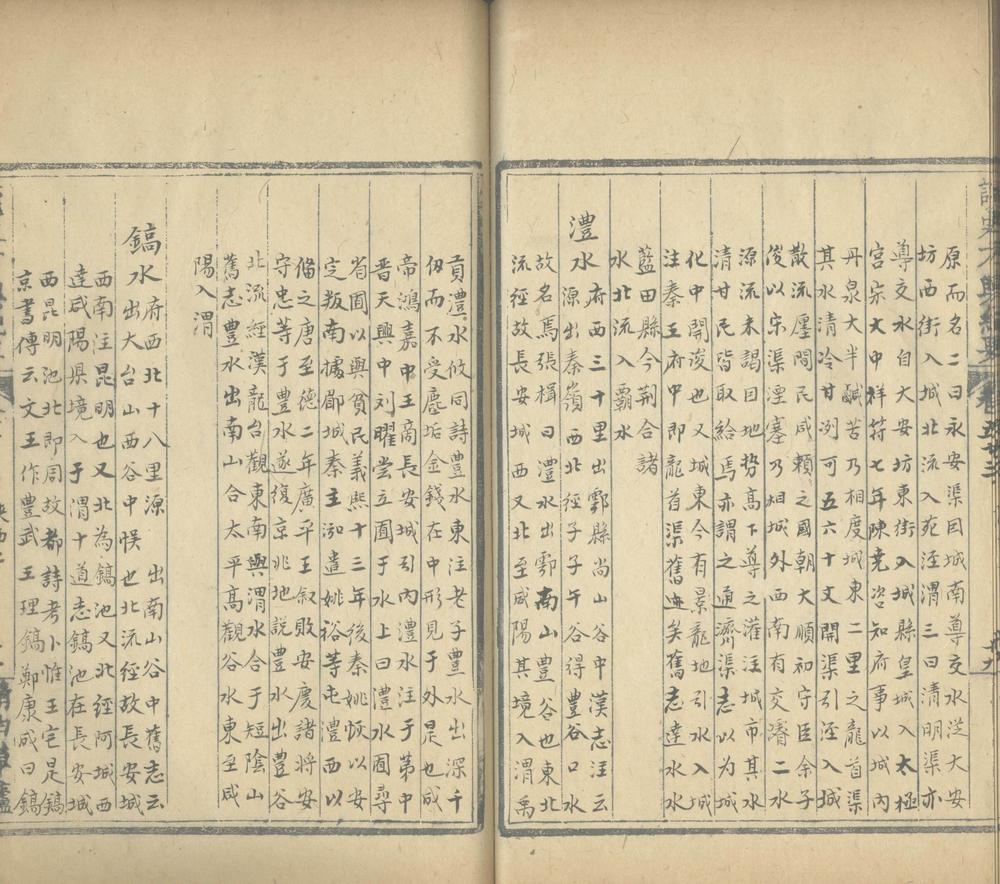 原而名二曰永安渠因城南導交水迳大安
坊西街入城北流入苑注渭三曰清明渠亦
導交水自大安坊東街入城縣皇城入太極
宮宋大中祥符七年陳堯咨知府事以城內
丹泉大半鹹苦乃相度城東二里之龍首渠
其水清冷甘冽可五六十丈開渠引注入城
散流廛閈民咸賴之國朝大順初守臣余子
俊以宋渠湮塞乃相城外西南有交潏二水
源流未謁因地势高下導之灌注城市其水
清甘民皆取給焉亦謂之通濟渠志以为城
化中開浚也又城東今有景龍地引水入城
注秦王府中即龍首渠舊迹矣舊志達水水
藍田縣今荆合諸
水北流入霸水
澧水府西三十里出鄠縣尚山谷中漢志注云
源出秦嶺西北經子子午谷得豊谷口水
故名焉張楫曰澧水出鄠南山豊谷也東北
流徑故長安城西又北至咸陽其境入渭禹
貢澧水攸同詩豊水東注老子豊水出深千
仭而不受塵垢金錢在中形見于外是也成
帝鴻嘉中王商長安城引內澧水注于第中
晋天興中刘曜嘗立囿于水上曰澧水囿尋
省囿以與貧民義熙十三年後秦姚恢以安
定叛南據郿城秦主泓遣姚裕等屯澧西以
俻之唐至德二年廣平王叙敗安慶諸將安
守忠等于豊水遂復京兆地説豊水出豊谷
北流經漢龍台觀東南與渭水合于短陰山
舊志豊水出南山合太平髙觀谷水東至咸
陽入渭
鎬水府西北十八里源出南山谷中舊志云
出大台山西谷中悮也北流徑故長安城
西南注昆明也又北為鎬池又北經阿城西
達咸陽県境入于渭十道志鎬池在長安城
西昆明池北即周故都詩考卜惟王宅是鎬
京書傳云文王作豊武王理鎬鄭康成曰鎬